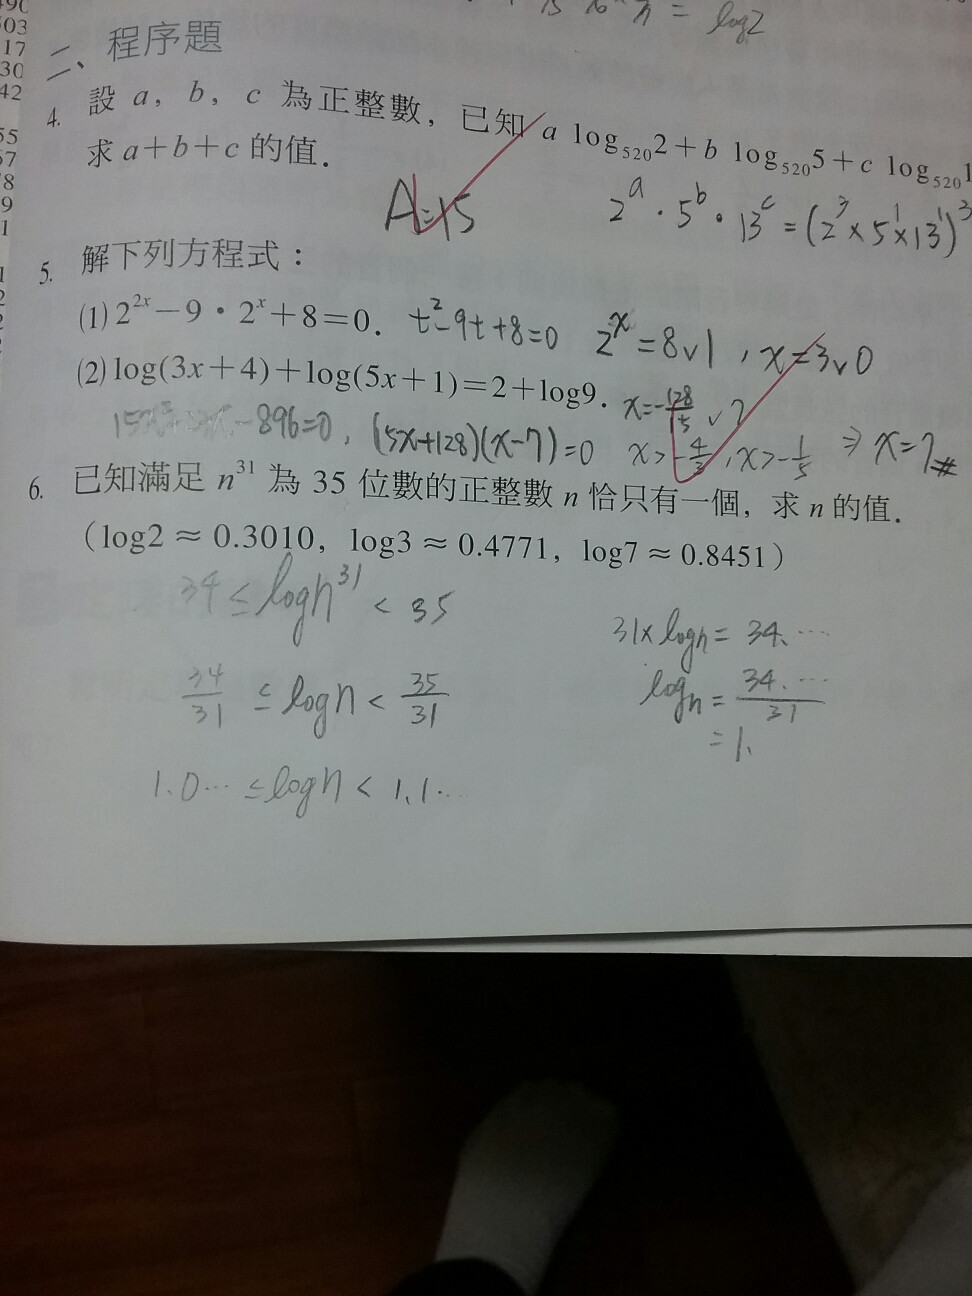 log2
490
503
17
30
42
55
57
8
9
1
二、程序題
4. 設 a, b, c 為正整數, 已知 a log₅₂₀2+b log₅₂₀5+c log₅₂₀1
求 a+b+c 的值.
A=15
2ᵃ · 5ᵇ · 13ᶜ = (2³×5¹×13¹)³
5. 解下列方程式:
(1) 2²ˣ−9·2ˣ+8=0. t²-9t+8=0 2ˣ=8∨1, x=3∨0
(2) log(3x+4)+log(5x+1)=2+log9. x=-128/15 ∨ 7
-896=0, (15x+128)(x-7)=0 x>-4/3, x>-1/5 ⇒ x=7#
6. 已知滿足 n³¹ 為 35 位數的正整數 n 恰只有一個, 求 n 的值.
(log2 ≈ 0.3010, log3 ≈ 0.4771, log7 ≈ 0.8451)
34 ≤ logn³¹ < 35
31×logn = 34.…
34/31 ≤ logn < 35/31
logn = 34.…/31
= 1.
1.0… ≤ logn < 1.1…